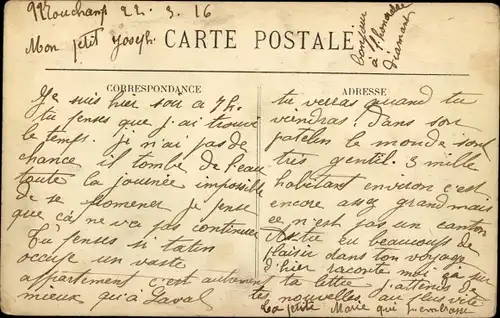 Mouchamp 22. 3. 16
Mon petit Joseph
CARTE POSTALE
Bonjour
à
diamant
CORRESPONDANCE
Je suis hier soir à 7h.
tu penses que j'ai trouvé
le temps. je n'ai pas de
chance il tombe de l'eau
toute la journée impossible
de se promener je pense
que ça ne va pas continuer
Tu penses si tatan
occupe un vaste
appartement c'est autrement
mieux qu'à Laval
ADRESSE
tu verras quand tu
viendras. Dans son
patelin le monde sont
très gentil. 3 mille
habitant environ c'est
encore assez grand mais
ce n'est pas un canton
As tu eu beaucoup de
plaisir dans ton voyage
d'hier raconte moi ça sur
ta lettre j'attends de
tes nouvelles au plus vite
ta petite Marie qui t'embrasse